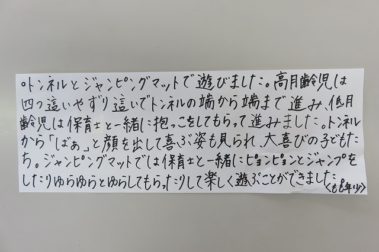 ○トンネルとジャンピングマットで遊びました。高月齢児は
四つ這いやずり這いでトンネルの端から端まで進み、低月
齢児は保育士と一緒に抱っこをしてもらって進みました。トンネル
から「ばぁ」と顔を出して喜ぶ姿も見られ、大喜びの子どもた
ち。ジャンピングマットでは保育士と一緒にピョンピョンとジャンプを
したりゆらゆらとゆらしてもらったりして楽しく遊ぶことができました